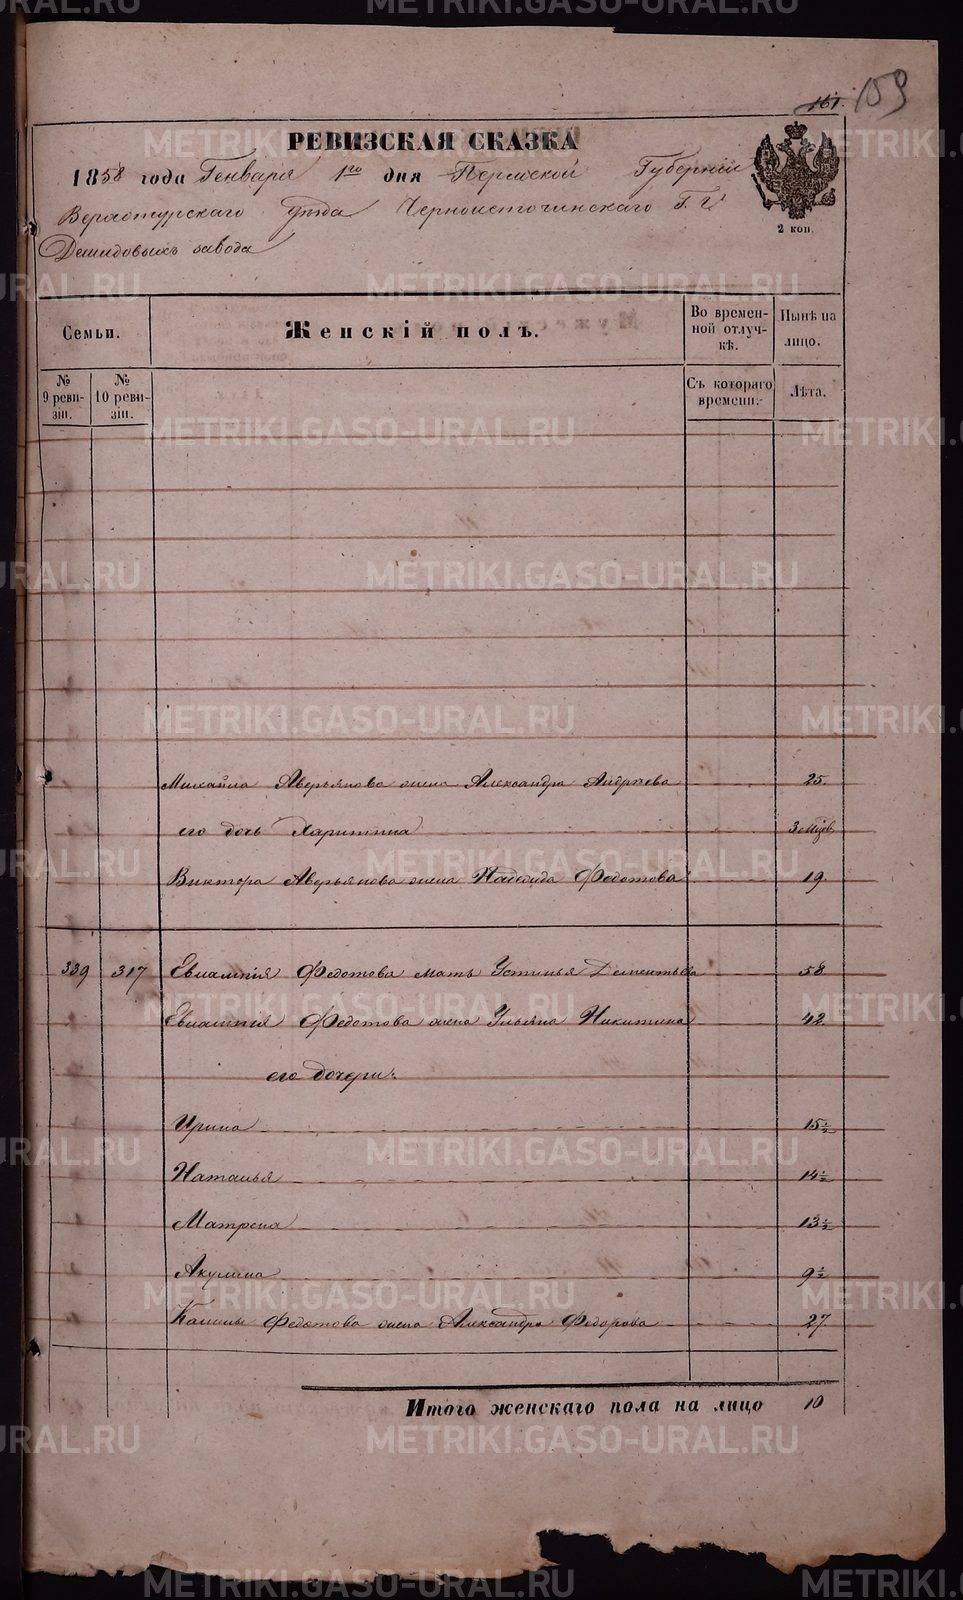 161. 159
РЕВИЗСКАЯ СКАЗКА
1858 года Генваря 1го дня Пермской Губерніи
Верхотурскаго уѣзда Черноисточинскаго Г.г.
Демидовыхъ завода
2 коп.
Семьи. Женскій полъ. Во временной отлучкѣ. Нынѣ на лицо.
№ 9 ревизіи. № 10 ревизіи. Съ котораго времени: Лѣта.
Михайла Аверьянова жена Александра Андреева 25.
его дочь Харитина 3 мѣсяц.
Виктора Аверьянова жена Надежда Федотова 19.
339 317 Евлампія Федотова мать Устинья Дементьева 58
Евлампія Федотова жена Ульяна Никитина 42.
его дочери:
Ирина 15½
Наталья 14½
Матрена 13½
Акулина 9½
Федотова жена Александра Федорова 27
Итого женскаго пола на лицо 10
METRIKI.GASO-URAL.RU